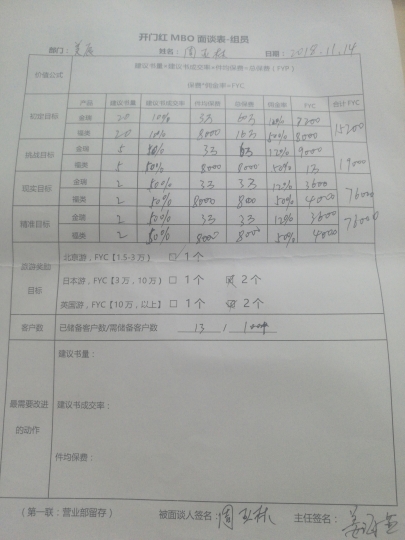 开门红 MBO 面谈表-组员
部门： 姓名：周 日期：2018.11.14
价值公式 建议书量*建议书成交率*件均保费=总保费（FYP）
保费*佣金率=FYC
产品 建议书量 建议书成交率 件均保费 总保费 佣金率 FYC 合计FYC
初定目标 金瑞 20 10% 3万 6万 8200 15200
福类 20 10% 8000 16万 50% 8000
挑战目标 金瑞 5 50% 3万 12% 9000 19000
福类 5 50% 8000 8000 50% 1万
现实目标 金瑞 2 50% 3万 3万 12% 3600 76000
福类 2 50% 8000 8000 50% 4000
精准目标 金瑞 2 50% 3万 3万 12% 3600 76000
福类 2 50% 8000 8000 50% 4000
旅游奖励目标 北京游，FYC【1.5-3万】 □ 1个
日本游，FYC【3万，10万】 □ 1个 ☑ 2个
美国游，FYC【10万，以上】 □ 1个 ☑ 2个
客户数 已储备客户数/需储备客户数 13 /
最需要改进的动作 建议书量：
建议书成交率：
件均保费：
（第一联：营业部留存） 被面谈人签名：周 林 主任签名：姜